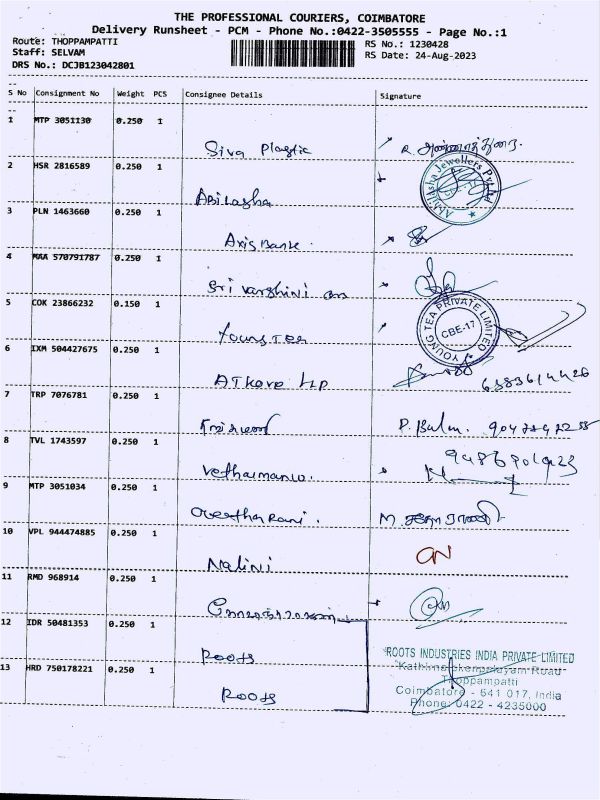 THE PROFESSIONAL COURIERS, COIMBATORE
Delivery Runsheet - PCM - Phone No.:0422-3505555 - Page No.:1
Route: THOPPAMPATTI
Staff: SELVAM
DRS No.: DCJB123042801
RS No.: 1230428
RS Date: 24-Aug-2023
S No Consignment No Weight PCS Consignee Details Signature
1 MTP 3051130 0.250 1
Siva Plastic
2 HSR 2816589 0.250 1
Abilasha
Abhilasha Jewellers Pvt Ltd
3 PLN 1463660 0.250 1
Axis Bank.
4 MAA 570791787 0.250 1
Sri Varshini
5 COK 23866232 0.150 1
Young Tea
YOUNG TEA PRIVATE LIMITED
CBE-17
6 IXM 504427675 0.250 1
LLP
7 TRP 7076781 0.250 1
P. Balm.
8 TVL 1743597 0.250 1
9 MTP 3051034 0.250 1
10 VPL 944474885 0.250 1
Nalini
11 RMD 968914 0.250 1
12 IDR 50481353 0.250 1
Roots
13 HRD 750178221 0.250 1
Roots
ROOTS INDUSTRIES INDIA PRIVATE LIMITED
Thoppampatti
Coimbatore - 641 017, India
Phone: 0422 - 4235000